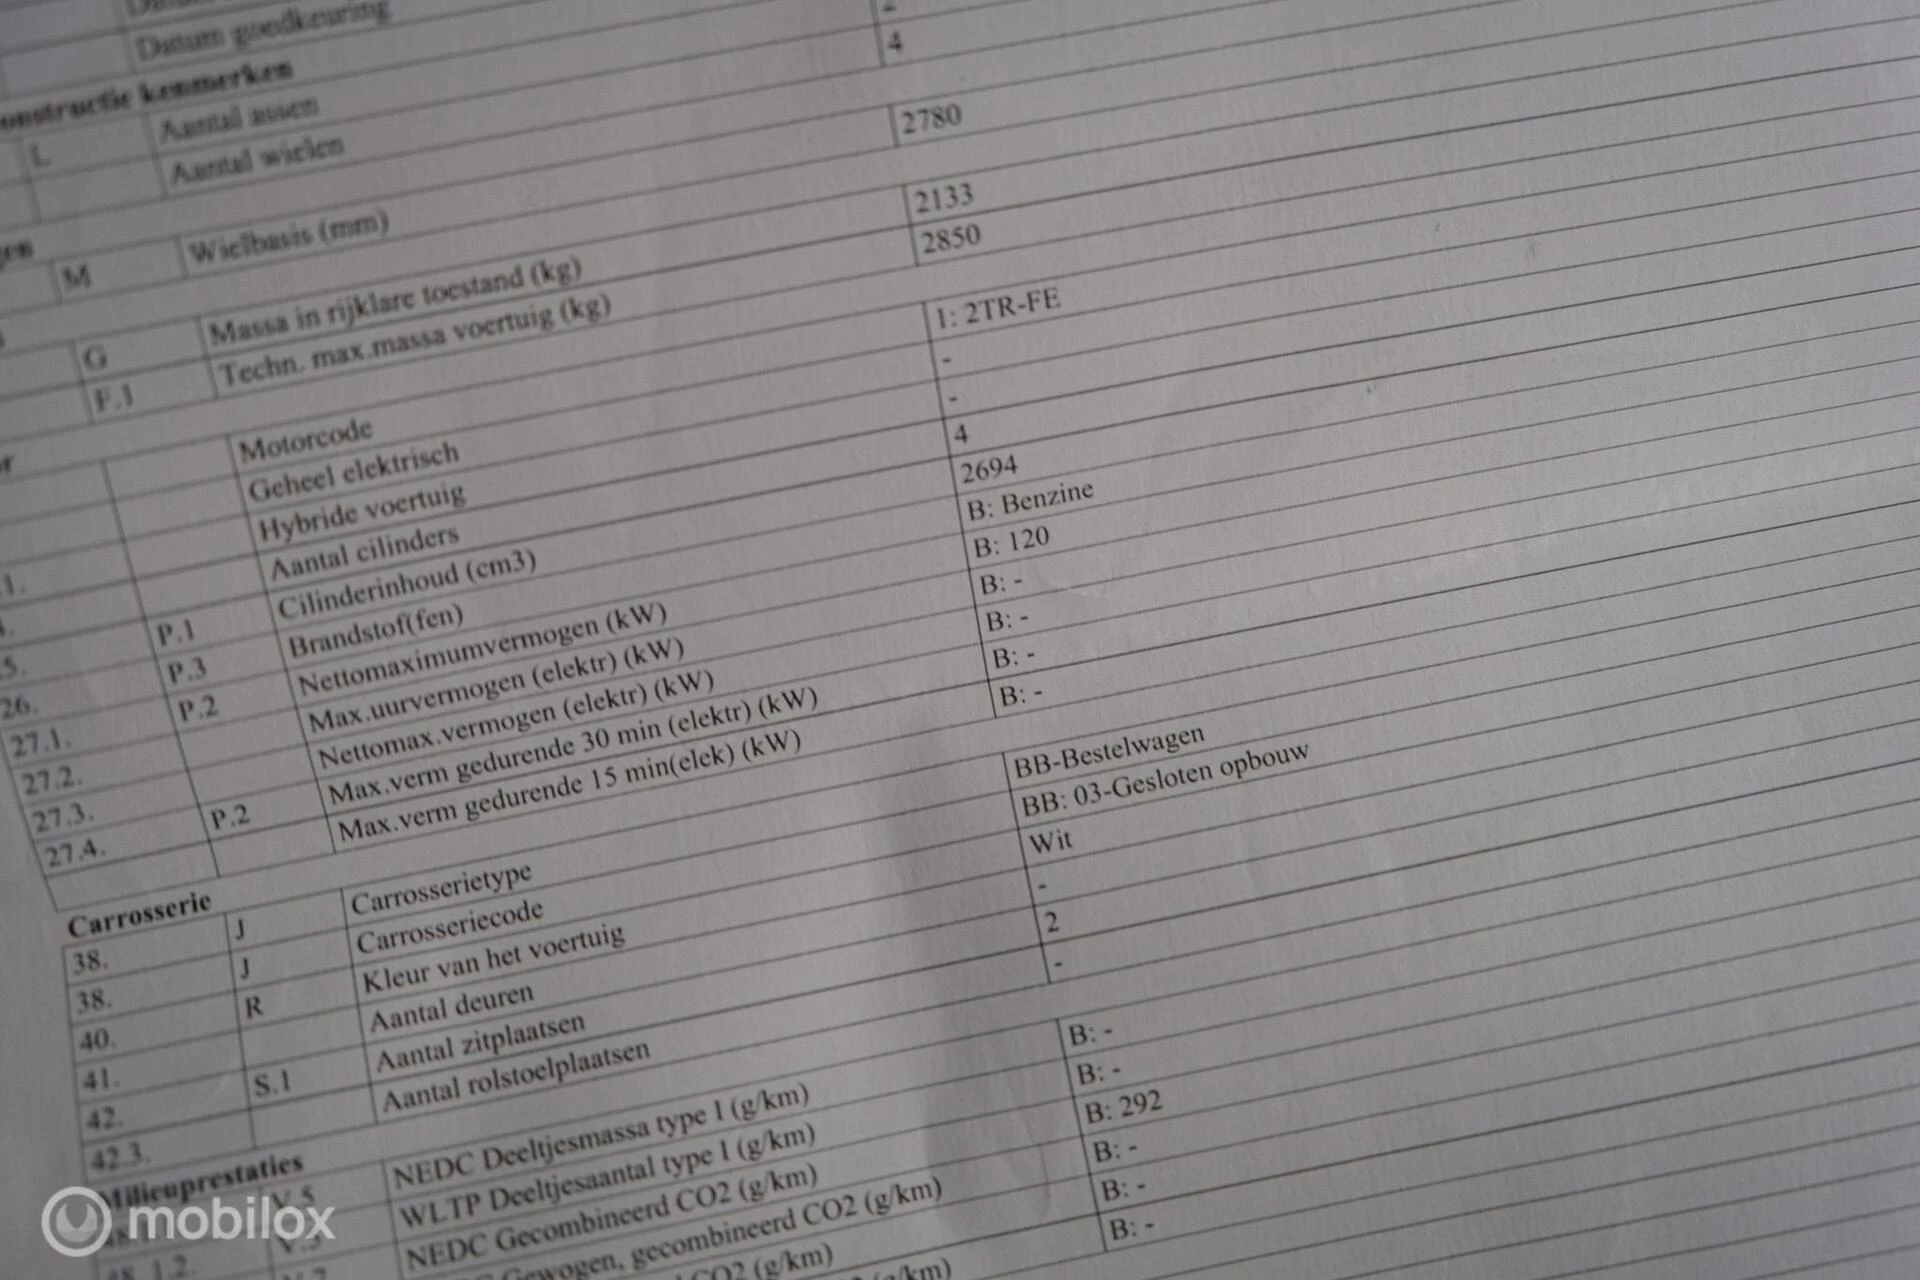 Datum goedkeuring
onstructie kenmerken
L Aantal assen 2
Aantal wielen 4
gen
M Wielbasis (mm) 2780
G Massa in rijklare toestand (kg) 2133
F.1 Techn. max.massa voertuig (kg) 2850
or
Motorcode 1: 2TR-FE
Geheel elektrisch -
1. Hybride voertuig -
Aantal cilinders 4
5. P.1 Cilinderinhoud (cm3) 2694
26. P.3 Brandstof(fen) B: Benzine
27.1. P.2 Nettomaximumvermogen (kW) B: 120
27.2. Max.uurvermogen (elektr) (kW) B: -
27.3. Nettomax.vermogen (elektr) (kW) B: -
27.4. P.2 Max.verm gedurende 30 min (elektr) (kW) B: -
Max.verm gedurende 15 min(elek) (kW) B: -
Carrosserie
38. J Carrosserietype BB-Bestelwagen
38. J Carrosseriecode BB: 03-Gesloten opbouw
40. R Kleur van het voertuig Wit
41. Aantal deuren -
42. S.1 Aantal zitplaatsen 2
42.3. Aantal rolstoelplaatsen -
Milieuprestaties
V.5 NEDC Deeltjesmassa type I (g/km) B: -
WLTP Deeltjesaantal type I (g/km) B: -
NEDC Gecombineerd CO2 (g/km) B: 292
Gewogen, gecombineerd CO2 (g/km) B: -
CO2 (g/km) B: -
B: -
mobilox